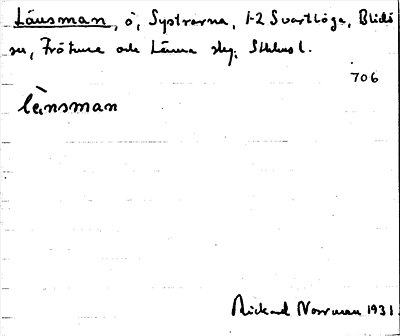 Länsman, ö, Systrarna, 1-2 Svartlöga, Blidö
sn, Frötuna och Länna slg; Sthlms l.
706
länsman
Rickard Norrman 1931